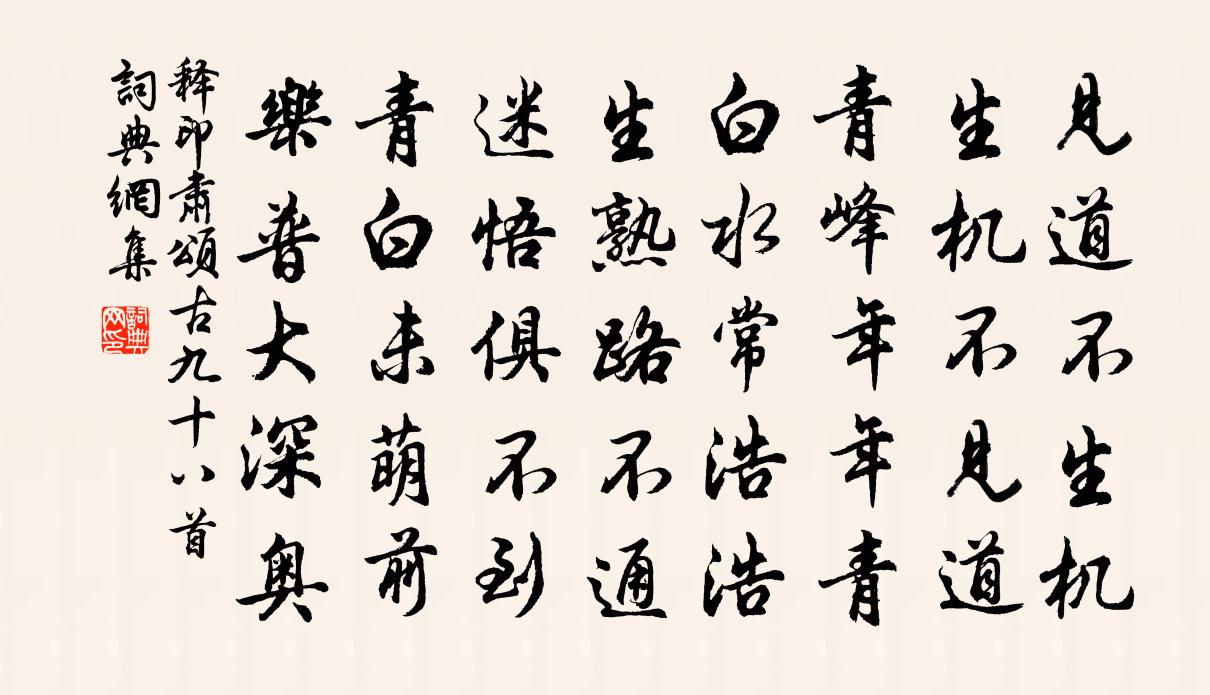 見道不生机
生机不見道
青峰年年青
白水常浩浩
生熟路不通
迷悟俱不到
青白未萌前
樂普大深奥
释印肅頌古九十八首
詞典網集
詞典网印